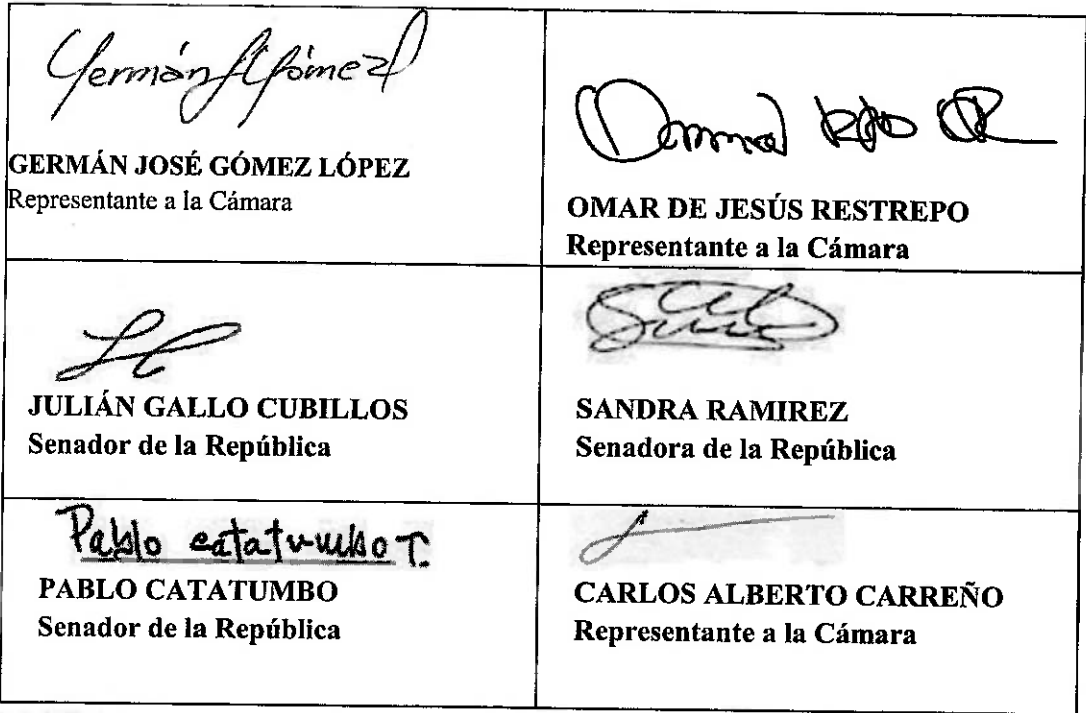 Germán J Gómez L
GERMÁN JOSÉ GÓMEZ LÓPEZ
Representante a la Cámara
OMAR DE JESÚS RESTREPO
Representante a la Cámara
JULIÁN GALLO CUBILLOS
Senador de la República
SANDRA RAMIREZ
Senadora de la República
Pablo catatumbo T.
PABLO CATATUMBO
Senador de la República
CARLOS ALBERTO CARREÑO
Representante a la Cámara